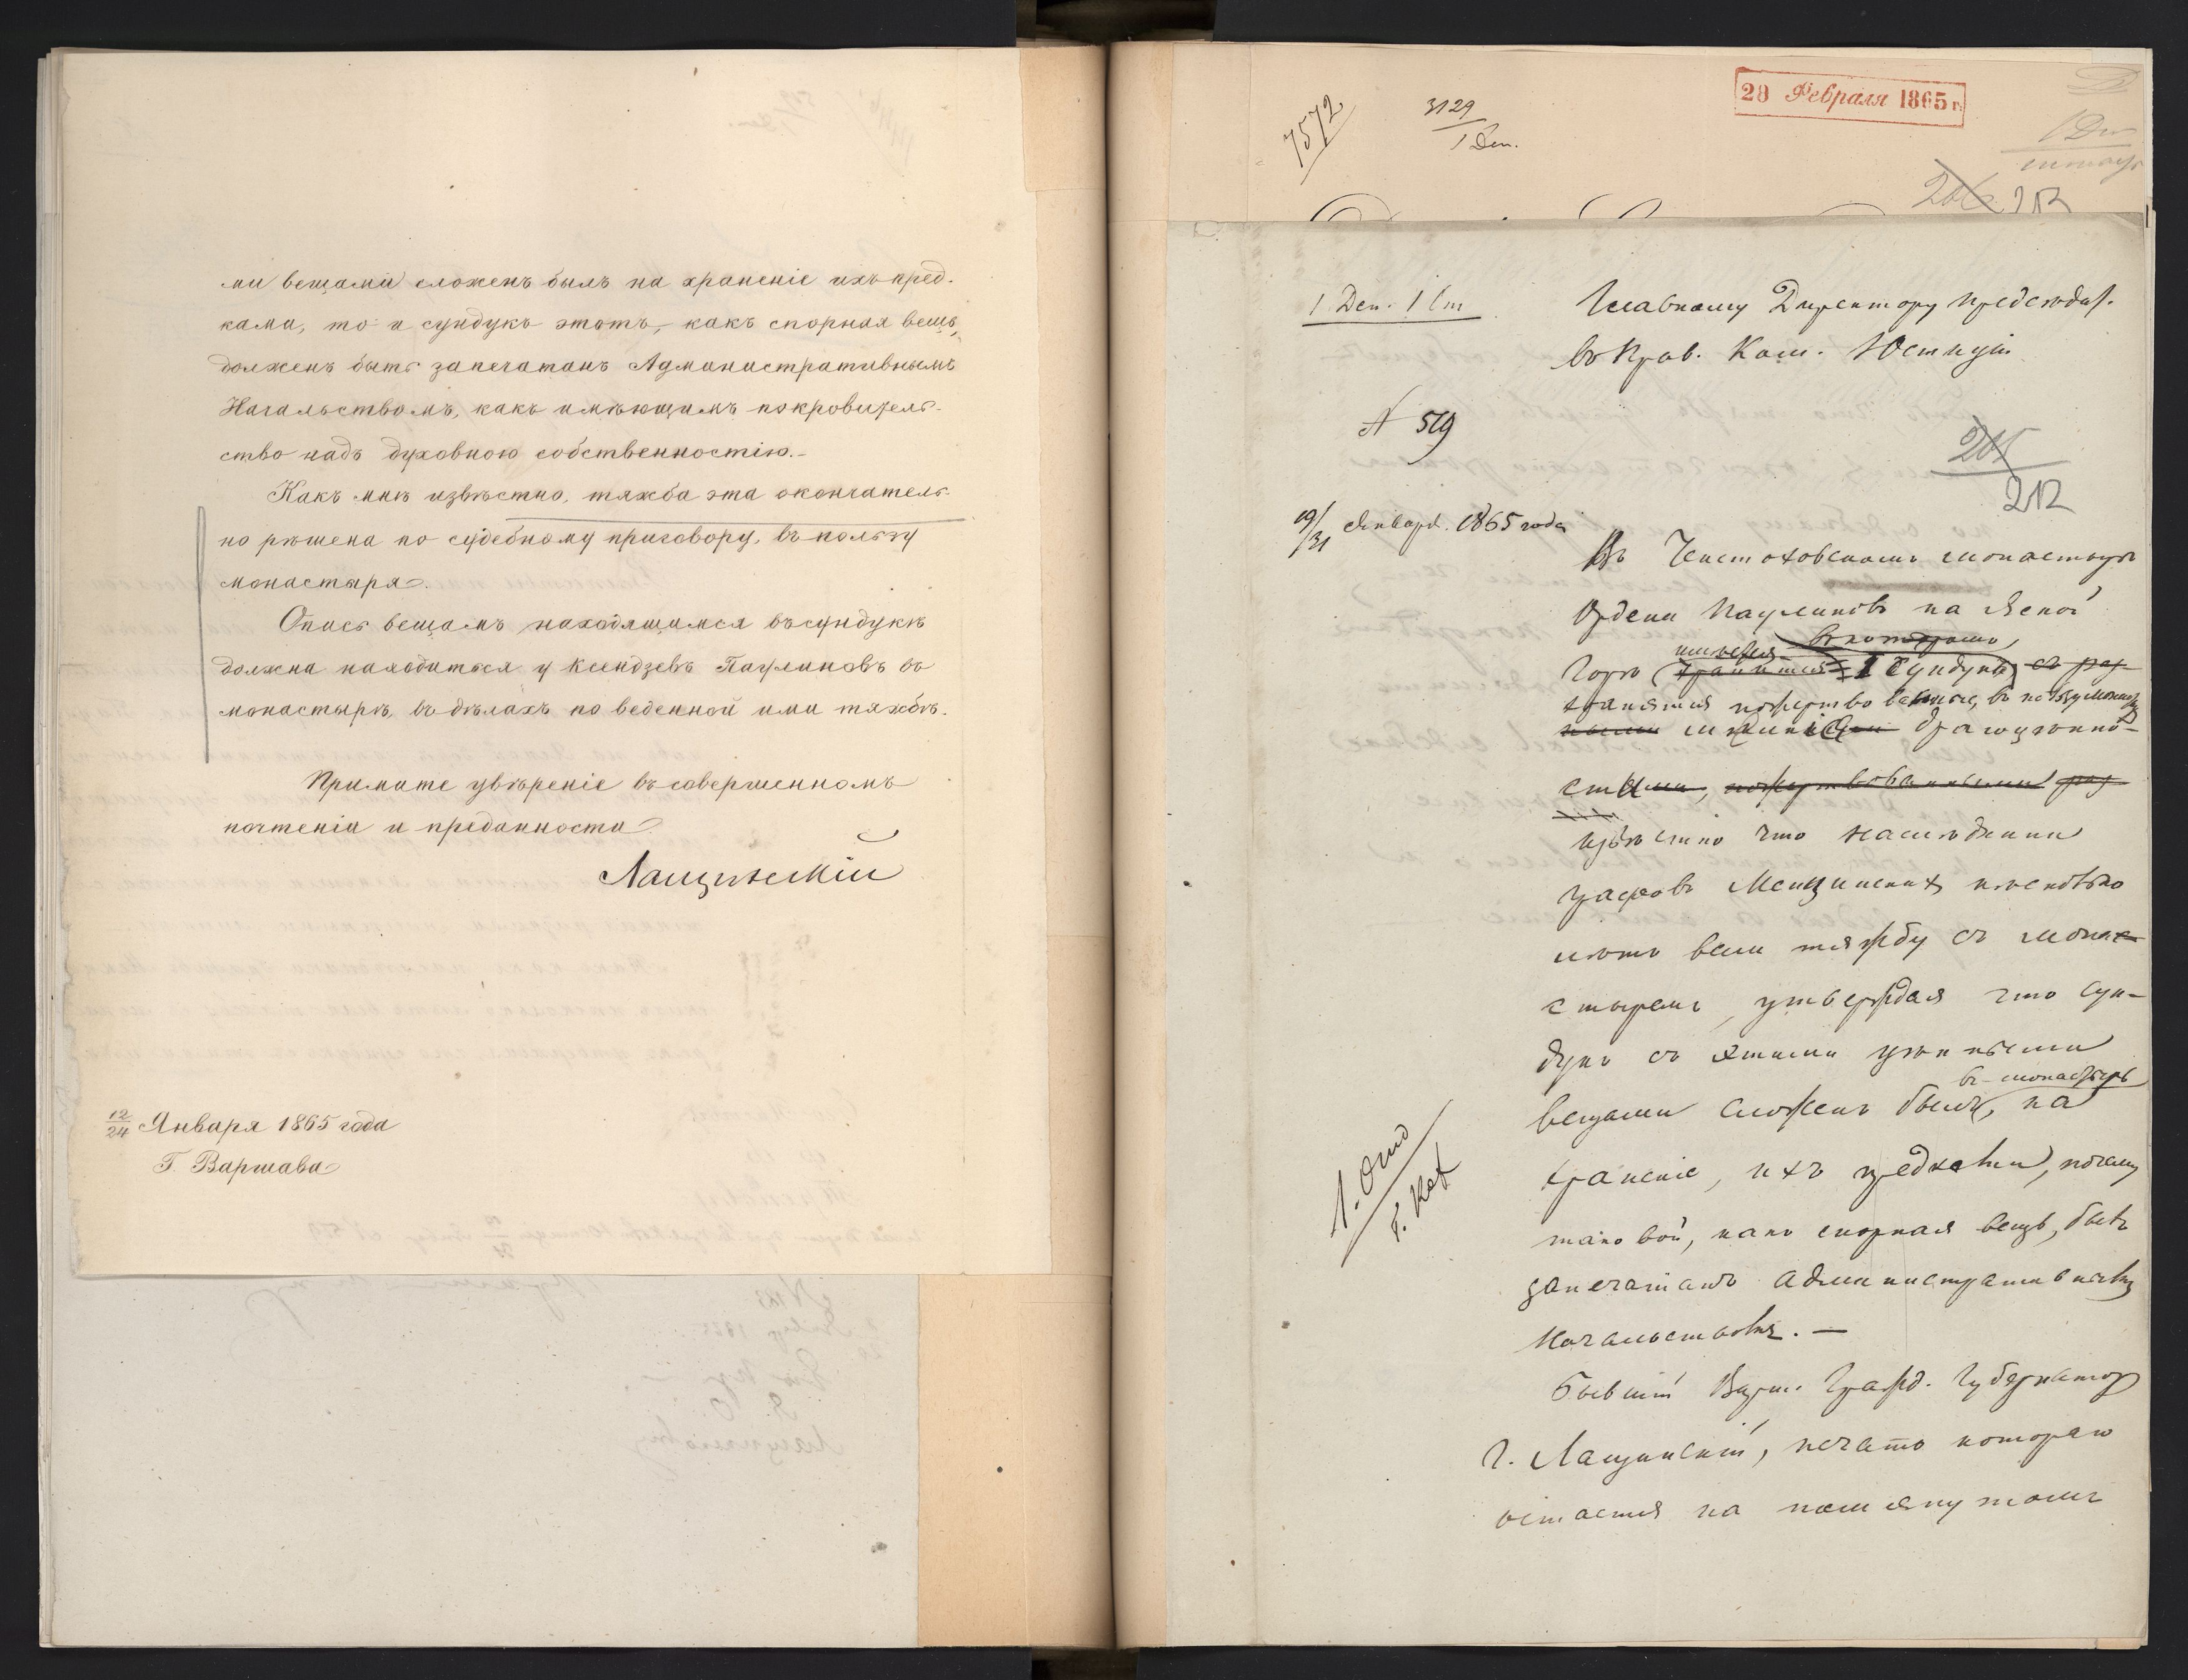 ми вещами сложенъ былъ на храненіе ихъ пред-
ками, то и сундукъ этотъ, какъ спорная вещь,
долженъ быть запечатанъ Административнымъ
Начальствомъ, какъ имѣющимъ покровитель-
ство надъ духовною собственностію.-
Какъ мнѣ извѣстно, тяжба эта окончатель-
но рѣшена по судебному приговору, въ пользу
монастыря.
Опись вещамъ находящимся въ сундукѣ
должна находиться у Ксендзевъ Паулиновъ въ
монастырѣ, въ дѣлахъ по веденной ими тяжбѣ.
Примите увѣреніе въ совершенномъ
почтеніи и преданности
Лащинскій
12/24 Января 1865 года
Г. Варшава
28 Февраля 1865 г.
7572
3129
1 Деп.
212
1 Деп. 1 Ст
Главному Директору председ.
въ Прав. Ком. Юстиціи
N 519
205
212
19/31 Января 1865 года
Въ Ченстоховскомъ монастырѣ
Ордена Паулиновъ на Ясной
въ которомъ,
имѣется
Горѣ (хранится 1 сундукъ)
хранятся пожертвованные, въ
драгоцѣнно-
сти, пожертвованными
Извѣстно что наслѣдники
графовъ Менцинскихъ нѣсколько
лѣтъ вели тяжбу съ мона-
стыремъ, утверждая что сун-
дукъ съ этими цѣнными
въ монастырь
вещами сложенъ былъ, на
храненіе, ихъ предками, почему
таковой, какъ спорная вещь, быть
запечатанъ Административнымъ
Начальствомъ. —
Бывшій Варш. Гражд. Губернаторъ
Г. Лащинскій, печать котораго
остается на помянутомъ